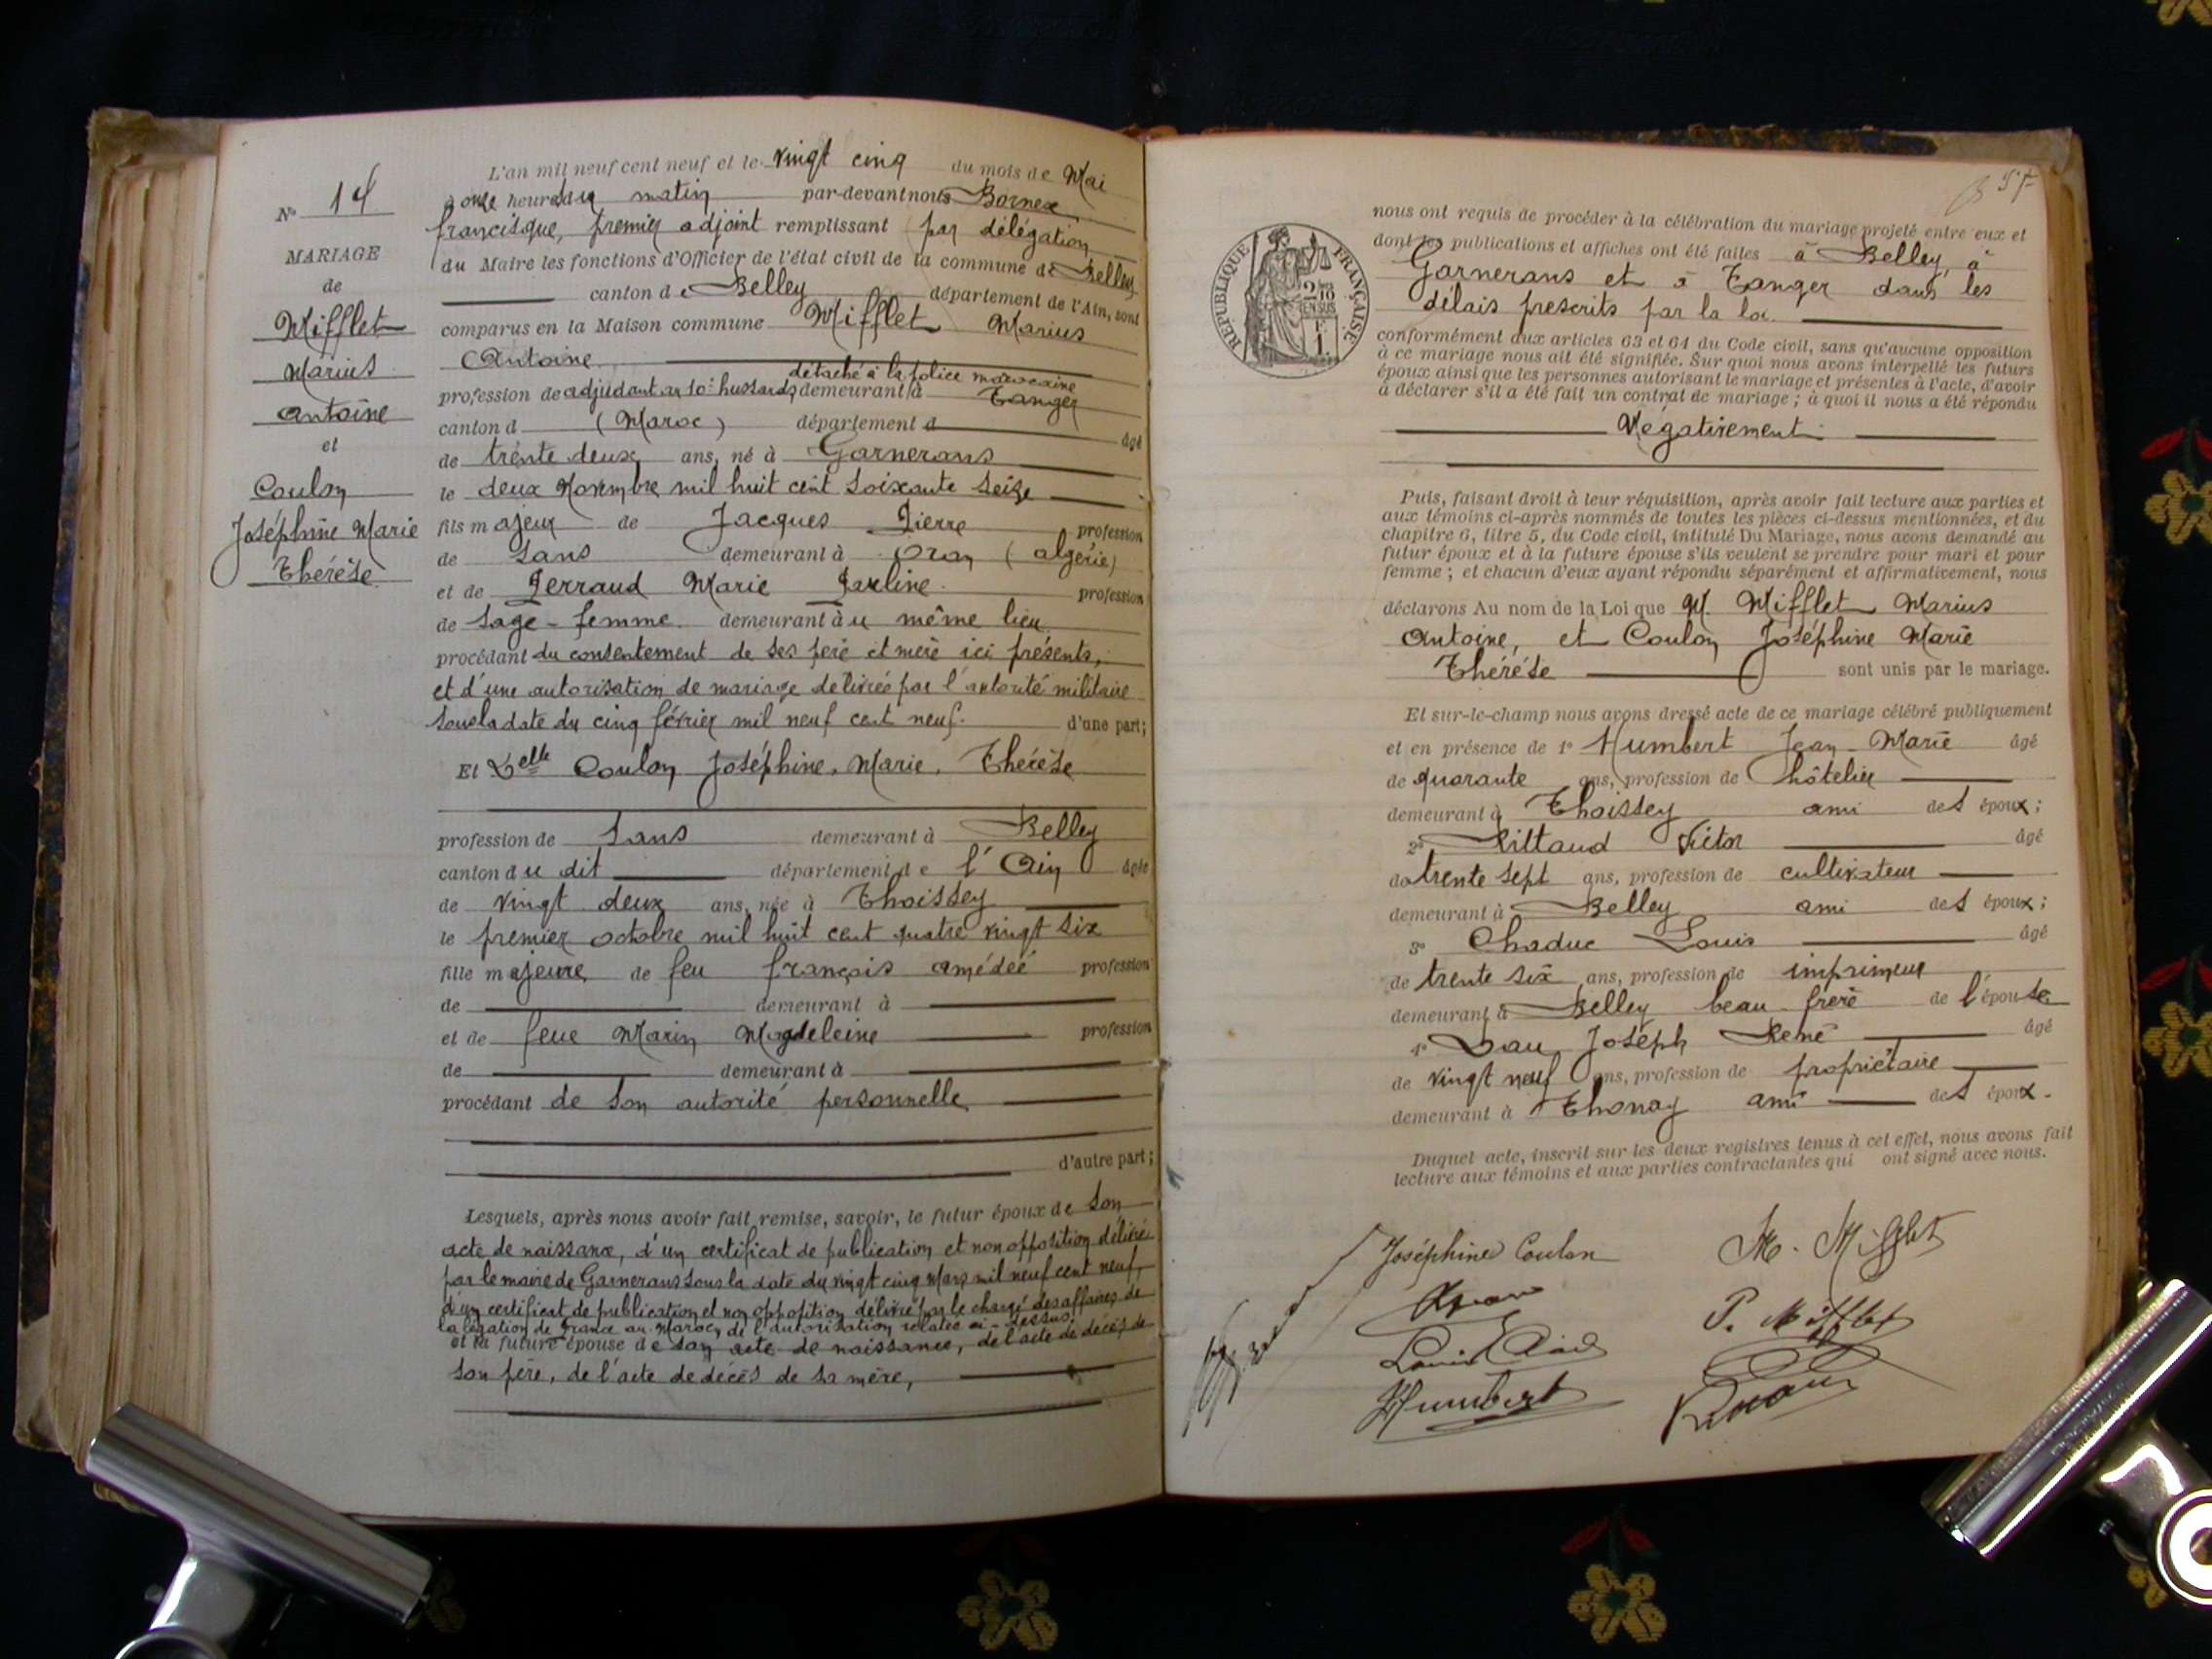 L'an mil neuf cent neuf et le vingt cinq du mois de Mai
à onze heures du matin par-devant nous Bornex
francisque, premier adjoint remplissant par délégation
du Maire les fonctions d'Officier de l'état civil de la commune de Belley
canton de Belley département de l'Ain, sont
comparus en la Maison commune Mifflet Marius
Antoine
détaché à la police marocaine
profession de adjudant au 10e hussards demeurant à Tanger
canton d (Maroc) département d âgé
de trente deux ans, né à Garnerans
le deux Novembre mil huit cent soixante seize
fils majeur de Jacques Pierre profession
de sans demeurant à Oran (algérie)
et de Perraud Marie Pauline profession
de sage-femme demeurant au même lieu
procédant du consentement de ses père et mère ici présents,
et d'une autorisation de mariage délivrée par l'autorité militaire
sous la date du cinq février mil neuf cent neuf. d'une part;
Et Delle Coulon Joséphine, Marie, Thérèse
profession de sans demeurant à Belley
canton du dit département de l'Ain âgée
de vingt deux ans, née à Thoissey
le premier octobre mil huit cent quatre vingt six
fille majeure de feu françois amédéé profession
de demeurant à
et de feue Marin Magdeleine profession
de demeurant à
procédant de son autorité personnelle
d'autre part;
Lesquels, après nous avoir fait remise, savoir, le futur époux de son
acte de naissance, d'un certificat de publication et non opposition délivré
par le maire de Garnerans sous la date du vingt cinq Mars mil neuf cent neuf,
d'un certificat de publication et non opposition délivré par le chargé des affaires de
la légation de France au Maroc, de l'autorisation relatée ci-dessus
et la future épouse de son acte de naissance, de l'acte de décès de
son père, de l'acte de décès de sa mère,
N° 14
MARIAGE
de
Mifflet
Marius
Antoine
et
Coulon
Joséphine Marie
Thérèse
57
RÉPUBLIQUE FRANÇAISE
nous ont requis de procéder à la célébration du mariage projeté entre eux et
dont les publications et affiches ont été faites à Belley, à
Garnerans et à Tanger dans les
délais prescrits par la loi
conformément aux articles 63 et 64 du Code civil, sans qu'aucune opposition
à ce mariage nous ait été signifiée. Sur quoi nous avons interpellé les futurs
époux ainsi que les personnes autorisant le mariage et présentes à l'acte, d'avoir
à déclarer s'il a été fait un contrat de mariage ; à quoi il nous a été répondu
Négativement
Puis, faisant droit à leur réquisition, après avoir fait lecture aux parties et
aux témoins ci-après nommés de toutes les pièces ci-dessus mentionnées, et du
chapitre 6, titre 5, du Code civil, intitulé Du Mariage, nous avons demandé au
futur époux et à la future épouse s'ils veulent se prendre pour mari et pour
femme ; et chacun d'eux ayant répondu séparément et affirmativement, nous
déclarons Au nom de la Loi que M. Mifflet Marius
Antoine, et Coulon Joséphine Marie
Thérèse sont unis par le mariage.
Et sur-le-champ nous avons dressé acte de ce mariage célébré publiquement
et en présence de 1° Humbert Jean-Marie âgé
de quarante ans, profession de hôtelier
demeurant à Thoissey ami des époux;
2° Rittaud Victor âgé
de trente sept ans, profession de cultivateur
demeurant à Belley ami des époux;
3° Chaduc Louis âgé
de trente six ans, profession de imprimeur
demeurant à Belley beau frère de l'épouse
4° Dau Joséph René âgé
de vingt neuf ans, profession de propriétaire
demeurant à Thonay ami des époux.
Duquel acte, inscrit sur les deux registres tenus à cet effet, nous avons fait
lecture aux témoins et aux parties contractantes qui ont signé avec nous.
Joséphine Coulon M. Mifflet
P. Mifflet
Humbert